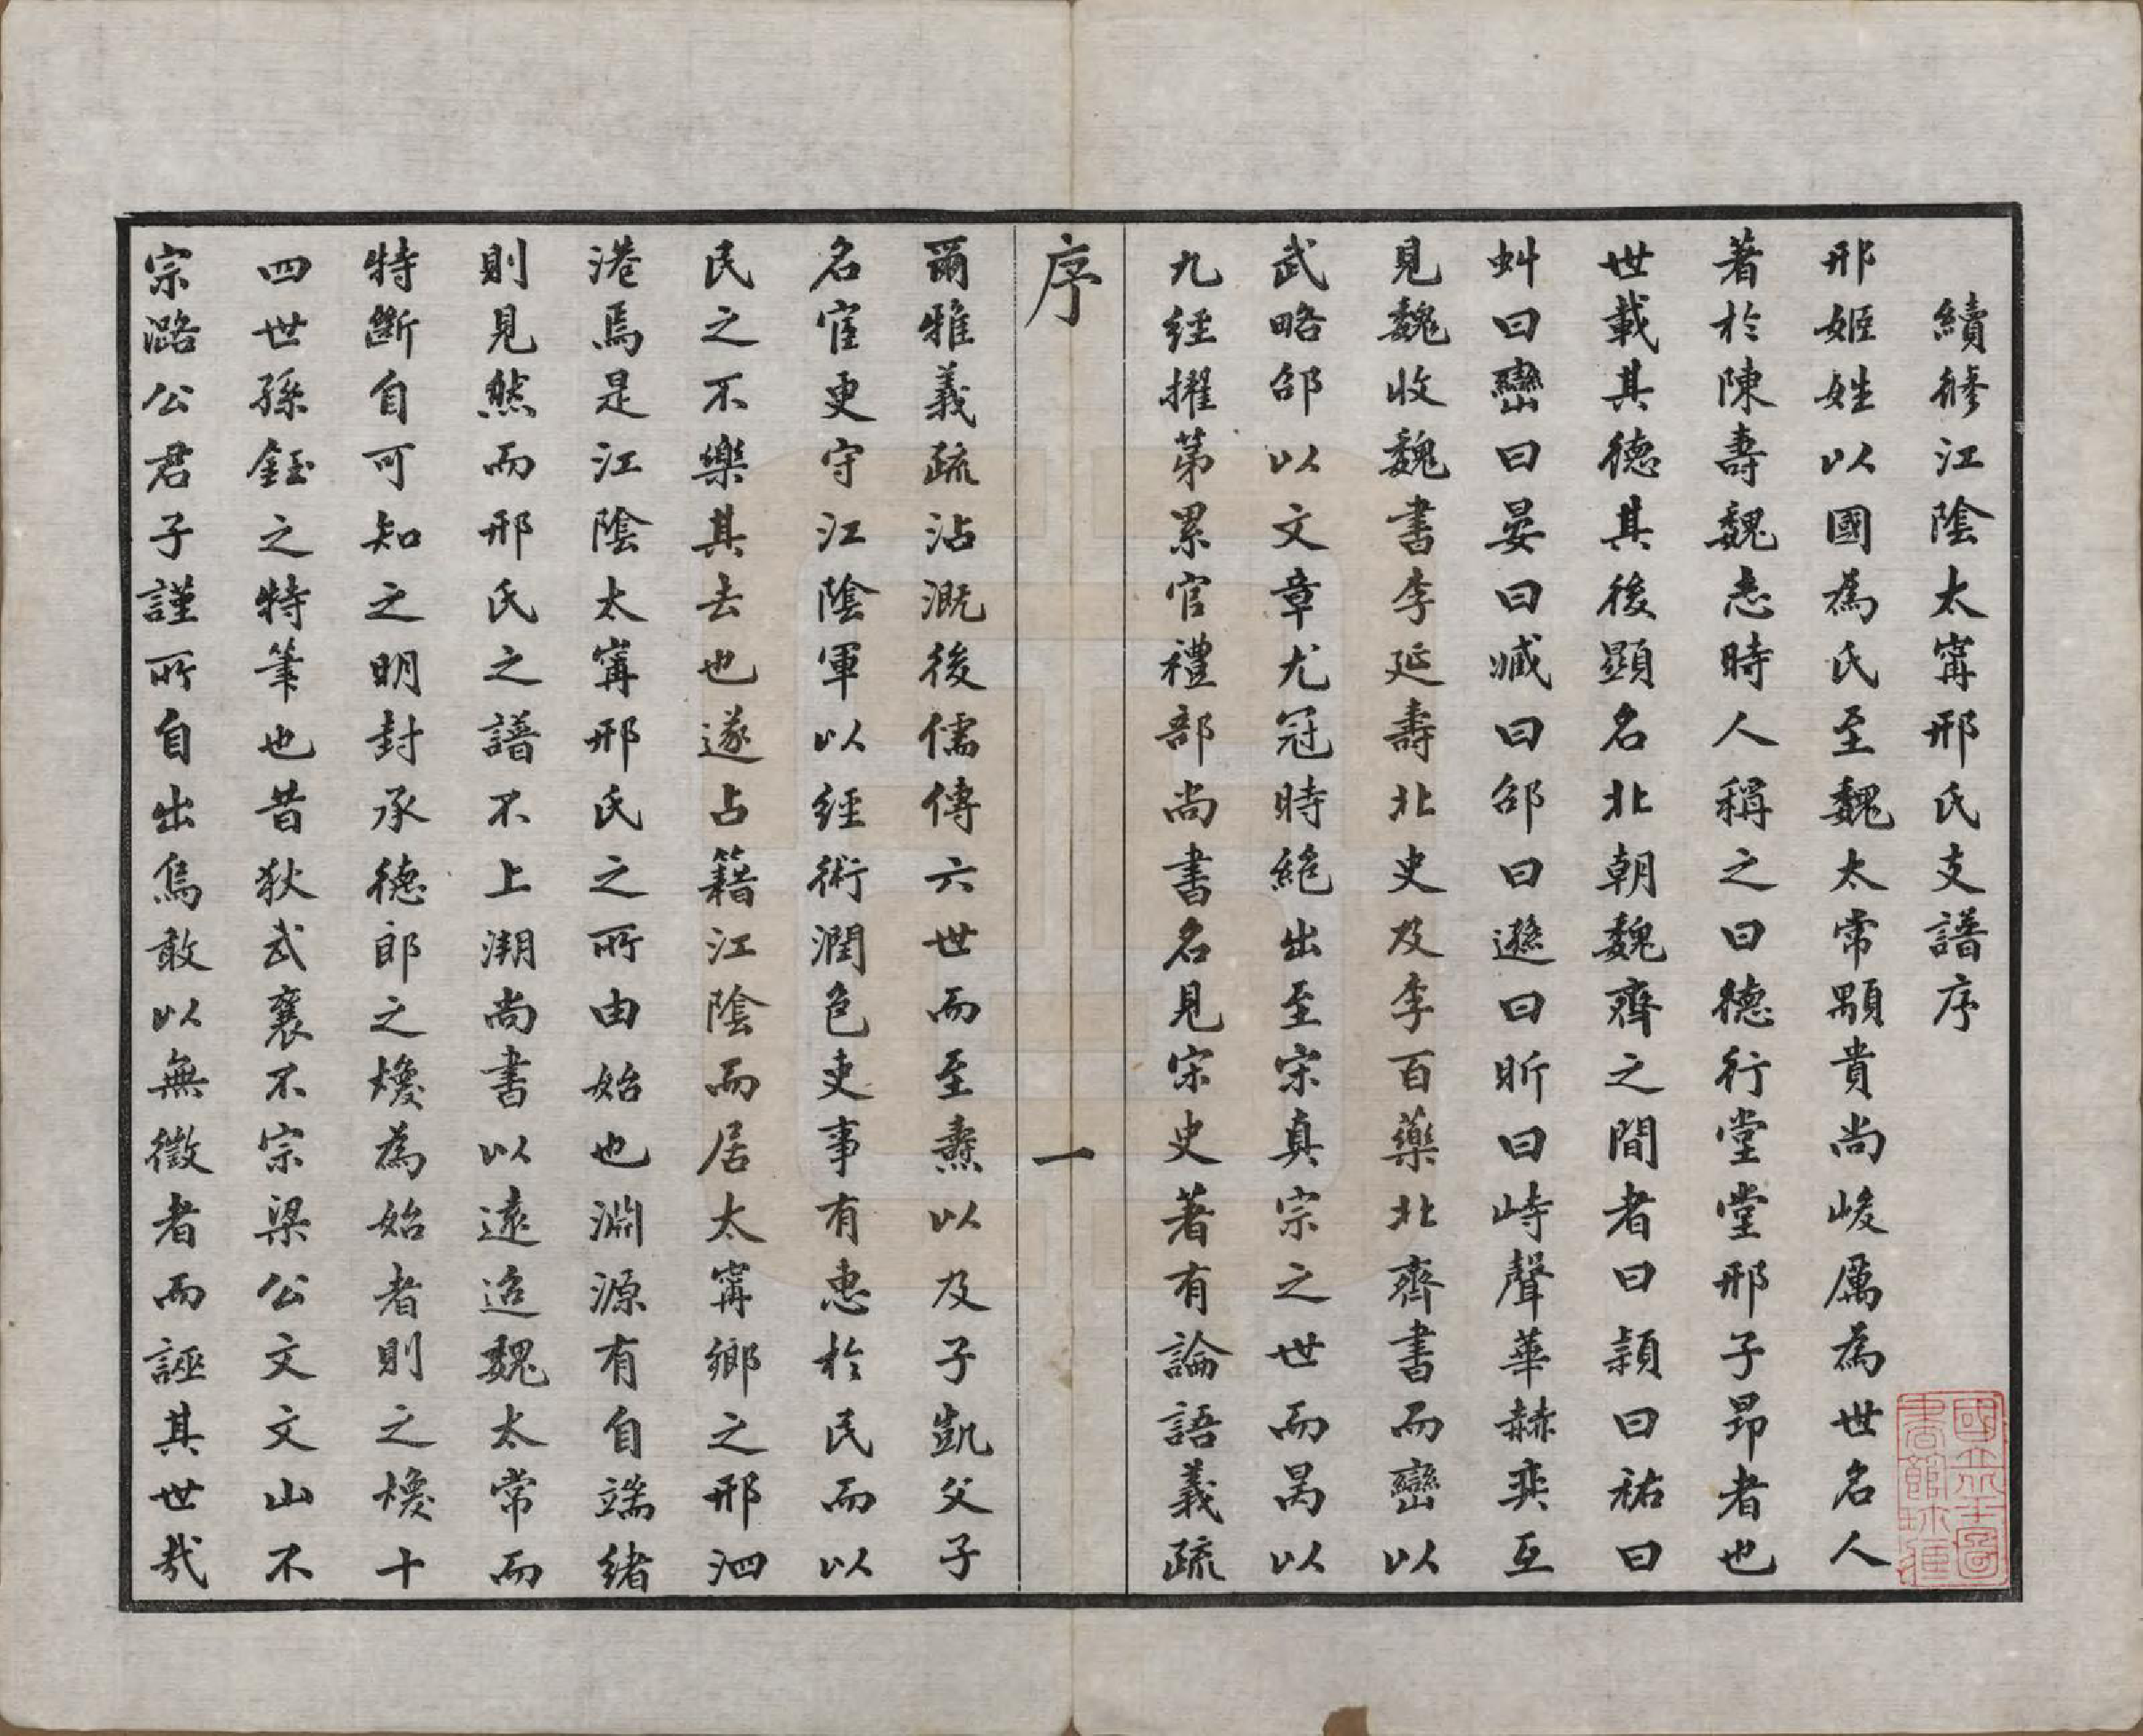 續修江陰太甯邢氏支譜序
邢姬姓以國為氏至魏太常顒貴尚峻厲為世名人
著於陳壽魏志時人稱之曰德行堂堂邢子昂者也
世載其德其後顯名北朝魏齊之間者曰穎曰祐曰
虯曰巒曰晏曰臧曰邵曰遜曰昕曰峙聲華赫奕互
見魏收魏書李延壽北史及李百藥北齊書而巒以
武略邵以文章尤冠時絕出至宋真宗之世而昺以
九經擢第累官禮部尚書名見宋史著有論語義疏
序 一
爾雅義疏沾溉後儒傳六世而至燾以及子凱父子
名宦更守江陰軍以經術潤色吏事有惠於民而以
民之不樂其去也遂占籍江陰而居太甯鄉之邢泗
港焉是江陰太甯邢氏之所由始也淵源有自端緒
則見然而邢氏之譜不上溯尚書以遠追魏太常而
特斷自可知之明封承德郎之㷟為始者則之㷟十
四世孫鈺之特筆也昔狄武襄不宗梁公文文山不
宗潞公君子謹所自出焉敢以無徵者而誣其世哉
國立北平圖書館珍藏